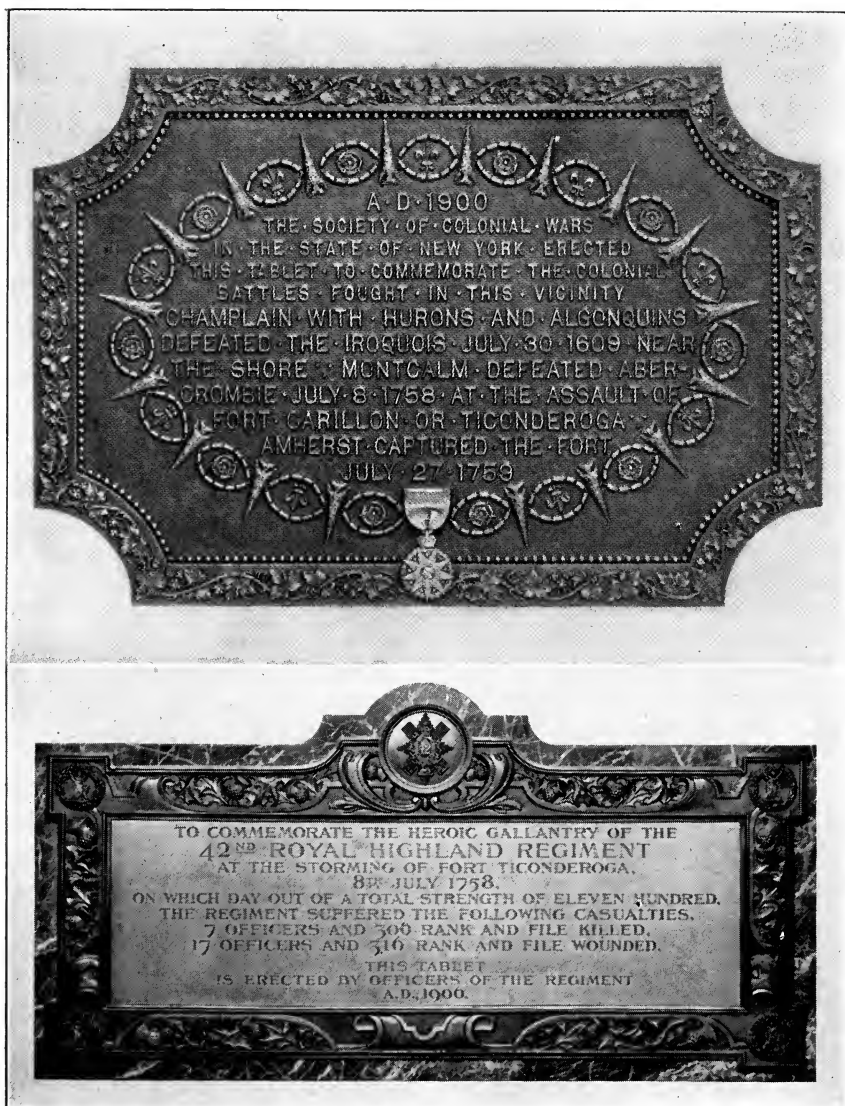 A·D·1900
THE·SOCIETY·OF·COLONIAL·WARS
IN·THE·STATE·OF·NEW YORK·ERECTED
THIS·TABLET·TO·COMMEMORATE·THE·COLONIAL
BATTLES·FOUGHT·IN·THIS·VICINITY
CHAMPLAIN·WITH·HURONS·AND·ALGONQUINS
DEFEATED·THE·IROQUOIS·JULY·30·1609·NEAR
THE·SHORE·MONTCALM·DEFEATED·ABER-
CROMBIE·JULY·8·1758·AT·THE·ASSAULT·OF
FORT·CARILLON·OR·TICONDEROGA
AMHERST·CAPTURED·THE·FORT
JULY·27·1759
TO COMMEMORATE THE HEROIC GALLANTRY OF THE
42ND ROYAL HIGHLAND REGIMENT
AT THE STORMING OF FORT TICONDEROGA,
8TH JULY 1758,
ON WHICH DAY OUT OF A TOTAL STRENGTH OF ELEVEN HUNDRED,
THE REGIMENT SUFFERED THE FOLLOWING CASUALTIES,
7 OFFICERS AND 306 RANK AND FILE KILLED,
17 OFFICERS AND 316 RANK AND FILE WOUNDED.
THIS TABLET
IS ERECTED BY OFFICERS OF THE REGIMENT
A.D., 1906.